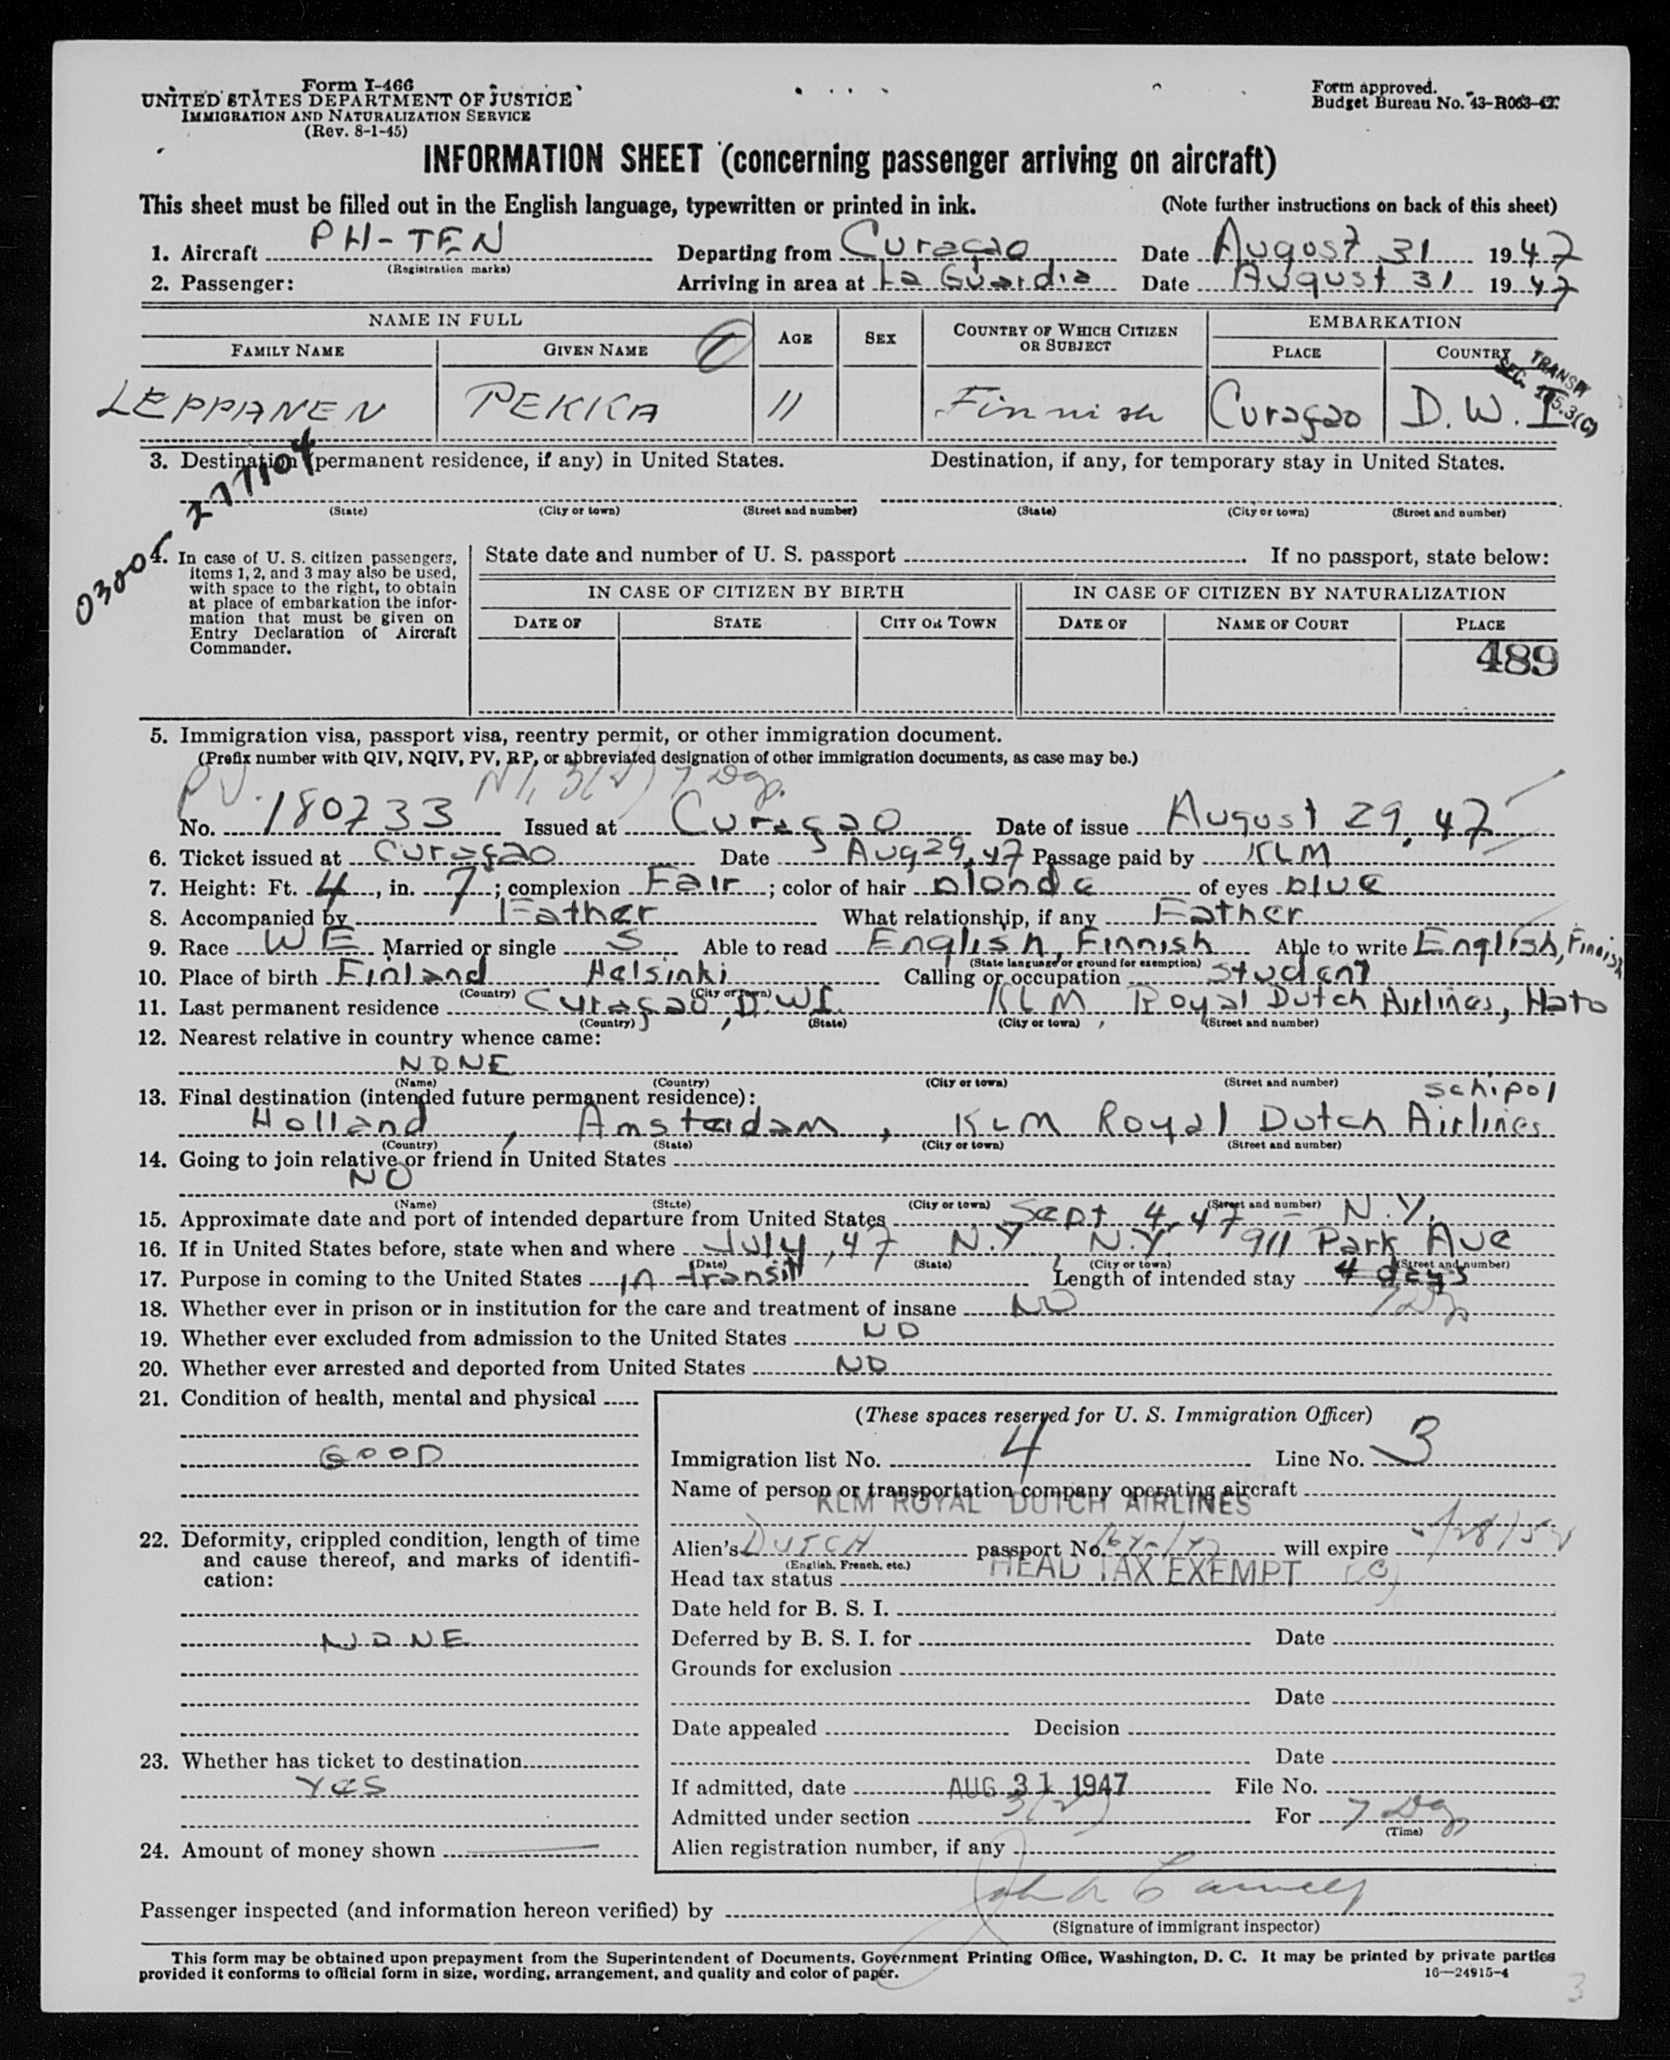 Form I-466
UNITED STATES DEPARTMENT OF JUSTICE
IMMIGRATION AND NATURALIZATION SERVICE
(Rev. 8-1-45)
Form approved.
Budget Bureau No. 43-R063-42.
INFORMATION SHEET (concerning passenger arriving on aircraft)
This sheet must be filled out in the English language, typewritten or printed in ink. (Note further instructions on back of this sheet)
1. Aircraft PH-TEN Departing from Curaçao Date August 31 1947
(Registration marks)
2. Passenger: Arriving in area at La Guardia Date August 31 1947
NAME IN FULL AGE SEX COUNTRY OF WHICH CITIZEN OR SUBJECT EMBARKATION
FAMILY NAME GIVEN NAME PLACE COUNTRY
TRANSIT
SEC. 175.3(C)
LEPPANEN PEKKA 11 Finnish Curaçao D.W.I.
3. Destination (permanent residence, if any) in United States. Destination, if any, for temporary stay in United States.
(State) (City or town) (Street and number) (State) (City or town) (Street and number)
4. In case of U. S. citizen passengers, items 1, 2, and 3 may also be used, with space to the right, to obtain at place of embarkation the information that must be given on Entry Declaration of Aircraft Commander.
State date and number of U. S. passport . If no passport, state below:
IN CASE OF CITIZEN BY BIRTH IN CASE OF CITIZEN BY NATURALIZATION
DATE OF STATE CITY OR TOWN DATE OF NAME OF COURT PLACE
489
5. Immigration visa, passport visa, reentry permit, or other immigration document.
(Prefix number with QIV, NQIV, PV, RP, or abbreviated designation of other immigration documents, as case may be.)
PV
No. 180733 Issued at Curaçao Date of issue August 29, 47
6. Ticket issued at Curaçao Date Aug 29, 47 Passage paid by KLM
7. Height: Ft. 4, in. 7; complexion Fair; color of hair blonde of eyes blue
8. Accompanied by Father What relationship, if any Father
9. Race WE Married or single S Able to read English, Finnish Able to write English, Finnish
(State language or ground for exemption)
10. Place of birth Finland Helsinki Calling or occupation student
(Country) (City or town)
11. Last permanent residence Curaçao, D.W.I. KLM Royal Dutch Airlines, Hato
(Country) (State) (City or town) (Street and number)
12. Nearest relative in country whence came:
NONE
(Name) (Country) (City or town) (Street and number)
13. Final destination (intended future permanent residence): Schipol
Holland, Amsterdam, KLM Royal Dutch Airlines
(Country) (State) (City or town) (Street and number)
14. Going to join relative or friend in United States
NO
(Name) (State) (City or town) (Street and number)
15. Approximate date and port of intended departure from United States Sept 4, 47 - N.Y.
16. If in United States before, state when and where July, 47 N.Y, N.Y. 911 Park Ave
(Date) (State) (City or town) (Street and number)
17. Purpose in coming to the United States in transit Length of intended stay 4 days
18. Whether ever in prison or in institution for the care and treatment of insane NO
19. Whether ever excluded from admission to the United States NO
20. Whether ever arrested and deported from United States NO
21. Condition of health, mental and physical
GOOD
22. Deformity, crippled condition, length of time and cause thereof, and marks of identification:
NONE
23. Whether has ticket to destination
YES
24. Amount of money shown
(These spaces reserved for U. S. Immigration Officer)
Immigration list No. 4 Line No. 3
Name of person or transportation company operating aircraft
KLM ROYAL DUTCH AIRLINES
Alien's DUTCH passport No. will expire
(English, French, etc.)
Head tax status HEAD TAX EXEMPT (C)
Date held for B. S. I.
Deferred by B. S. I. for Date
Grounds for exclusion
Date
Date appealed Decision
Date
If admitted, date AUG 31 1947 File No.
Admitted under section 3(2) For 7 Days
(Time)
Alien registration number, if any
Passenger inspected (and information hereon verified) by
(Signature of immigrant inspector)
This form may be obtained upon prepayment from the Superintendent of Documents, Government Printing Office, Washington, D. C. It may be printed by private parties
provided it conforms to official form in size, wording, arrangement, and quality and color of paper. 16—24915-4
3